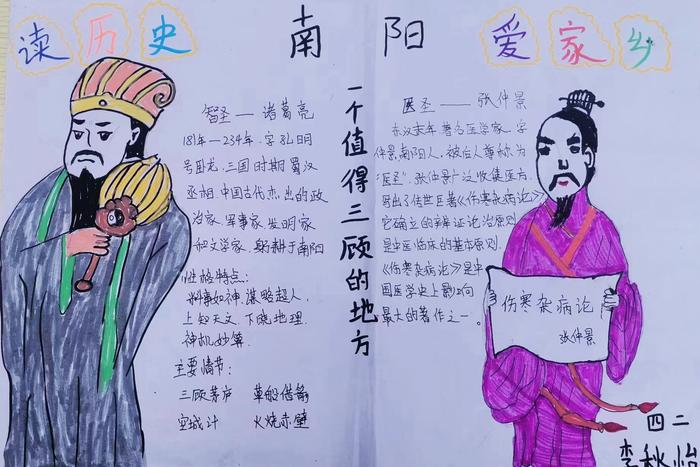 读历史 南阳 爱家乡
一个值得三顾的地方
智圣——诸葛亮
181年—234年.字孔明
号卧龙.三国时期蜀汉
丞相.中国古代杰出的政
治家.军事家.发明家
和文学家.躬耕于南阳
性格特点:
料事如神.谋略超人.
上知天文.下晓地理.
神机妙算.
主要情节:
三顾茅庐 草船借箭
空城计 火烧赤壁
医圣——张仲景
东汉末年著名医学家.字
仲景,南阳人.被后人尊称为
“医圣”.张仲景广泛收集医方
写出了传世巨著《伤寒杂病论》
它确立的辨证论治原则
是中医临床的基本原则.
《伤寒杂病论》是中
国医学史上影响
最大的著作之一。
伤寒杂病论
张仲景
四二
李秋怡